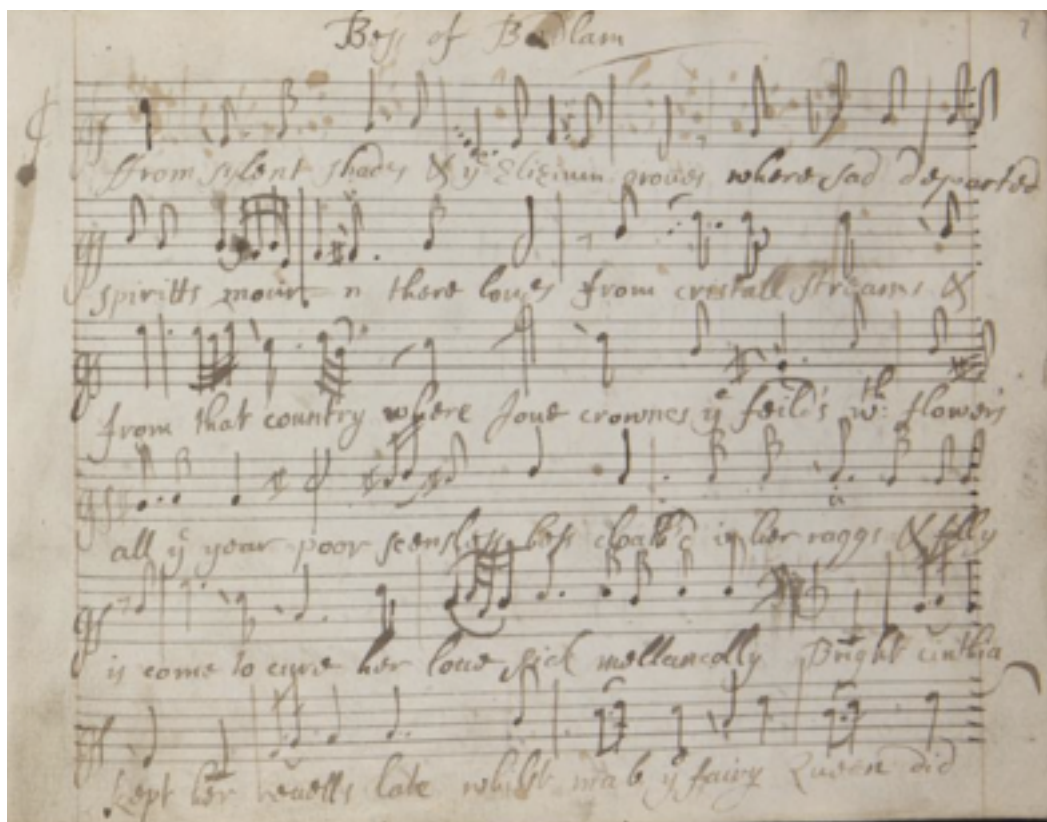 Bess of Bedlam
7
from sylent shades & ye Elizium groves where sad departed
spiritts mour n there loves from cristall streams &
from that country where Jove crownes ye feild's wth: flowers
all ye year poor senless bess cloath'd in her raggs & folly
is come to cure her love sick mellancolly Bright Cinthia
kept her revells late whilst mab ye fairy Queen did